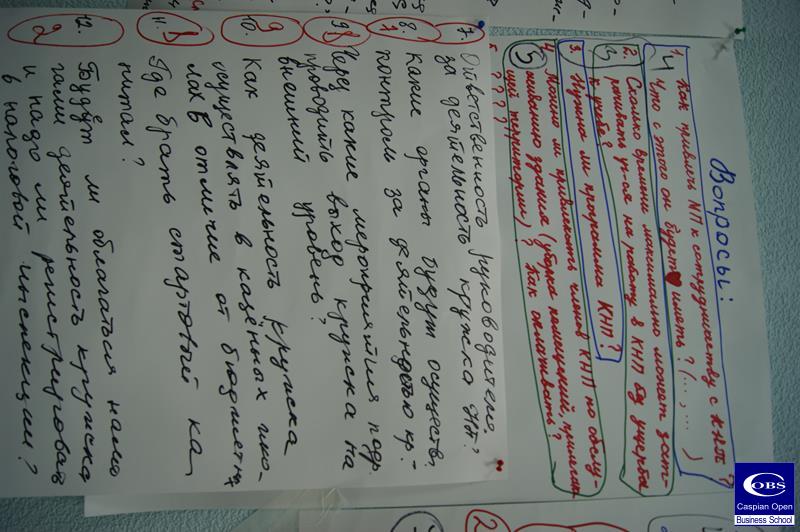 Вопросы:
1. Как привлечь МП к сотрудничеству с КНП?
4 Что с этого он будет иметь? (..., ... )
2. Сколько времени максимально может зат-
3 рачивать уч-ся на работу в КНП без ущерба
к учебе?
3. Нужна ли программа КНП?
4. Можно ли привлекать членов КНП по обслу-
5 живанию здания (уборка помещений, прилега-
щей территории)? Как оплачивать?
5. ? ? ? ?
7. Ответственность руководителя
за деятельность кружка
8. Какие органы будут осуществ.
7 контроль за деятельностью кр.
9. Через какие мероприятия
8 проводить выход кружка на
внешний уровень?
10. Как деятельность кружка
9 осуществлять в казённых шко-
лах в отличие от бюджетных
11. Где брать стартовый ка-
8 питал?
12. Будет ли облагаться нало-
2 гами деятельность кружка
и надо ли регистрировать
в налоговой инспекции?
COBS
Caspian Open
Business School